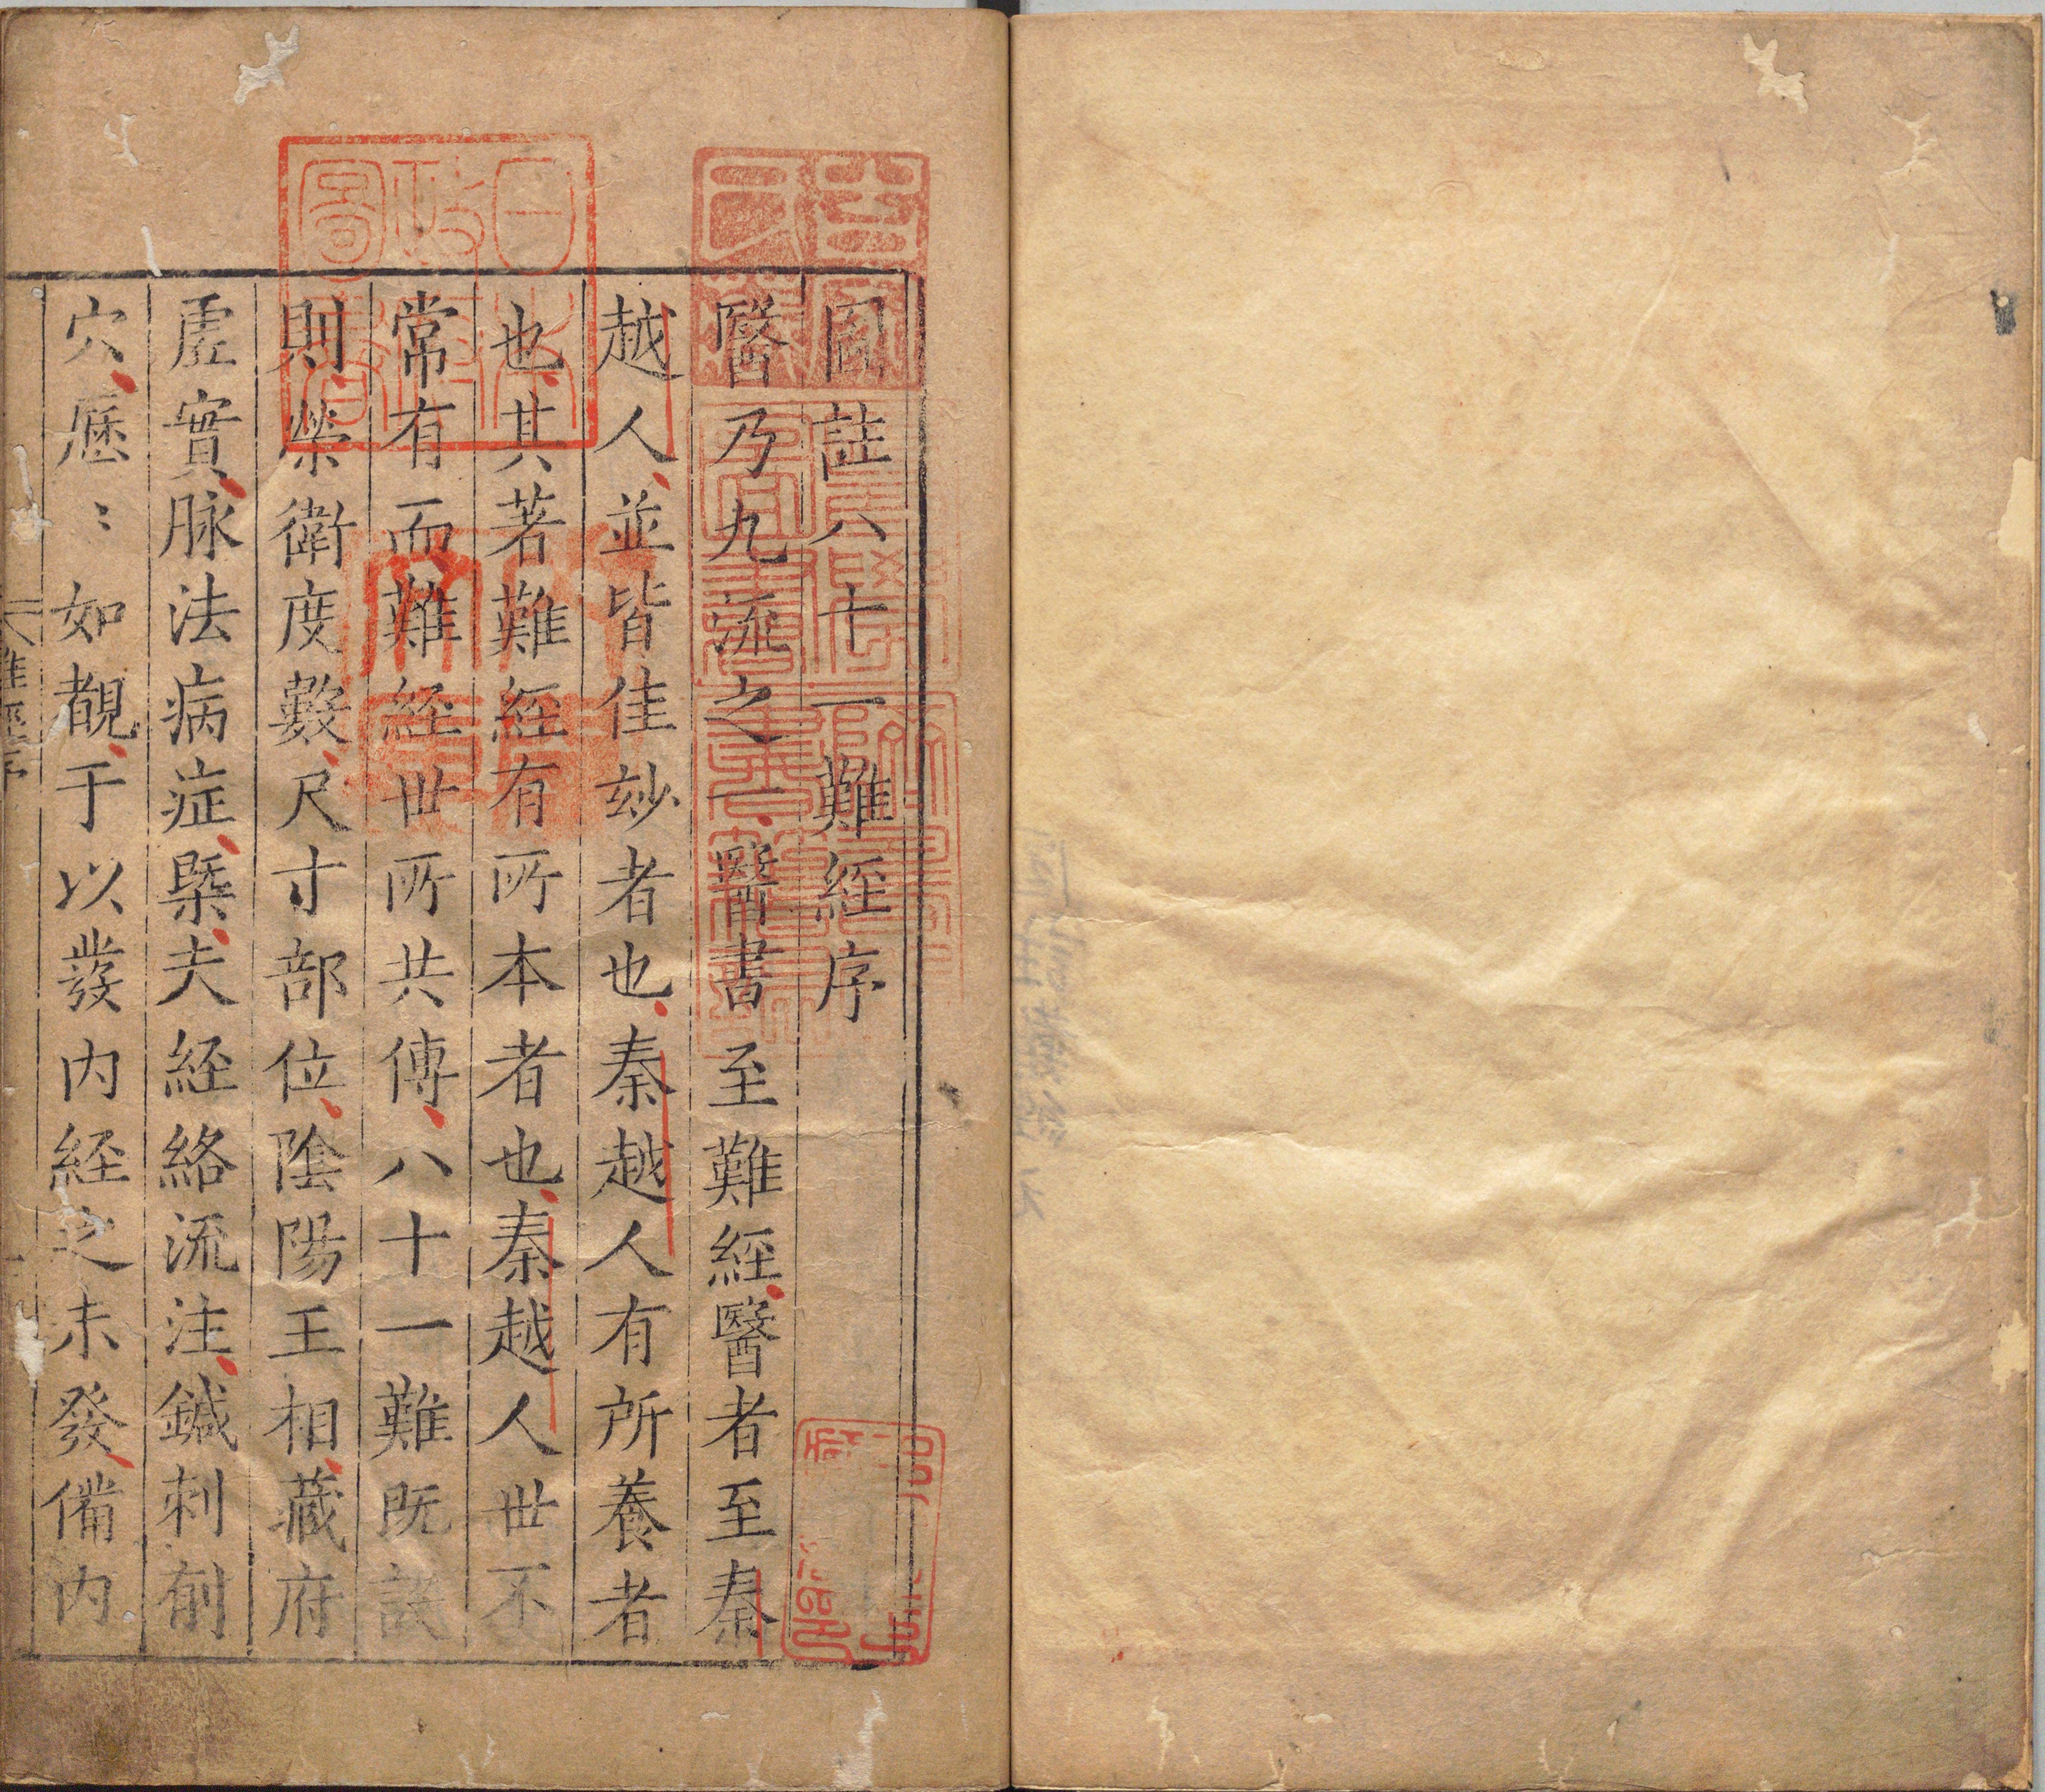 圖註八十一難經序
醫乃九流之一醫書至難經醫者至秦
越人並皆佳玅者也秦越人有所養者
也其著難經有所本者也秦越人世不
常有而難経世所共傳八十一難既設
則榮衛度數尺寸部位陰陽王相藏府
虛實脉法病症槩夫経絡流注鍼刺俞
穴歷〻如覩于以發内経之未發備内
難經序
日本
政
圖書